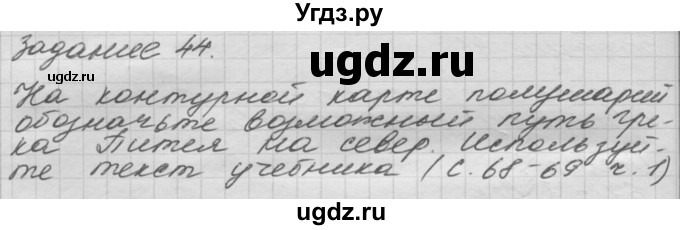 Угдз.ру
Задание 44.
ugdz.ru
На контурной карте полушарий
обозначьте возможный путь гре-
ка Питея на север. Используй-
те текст учебника (с. 68-69 ч. 1)
ugdz.ru